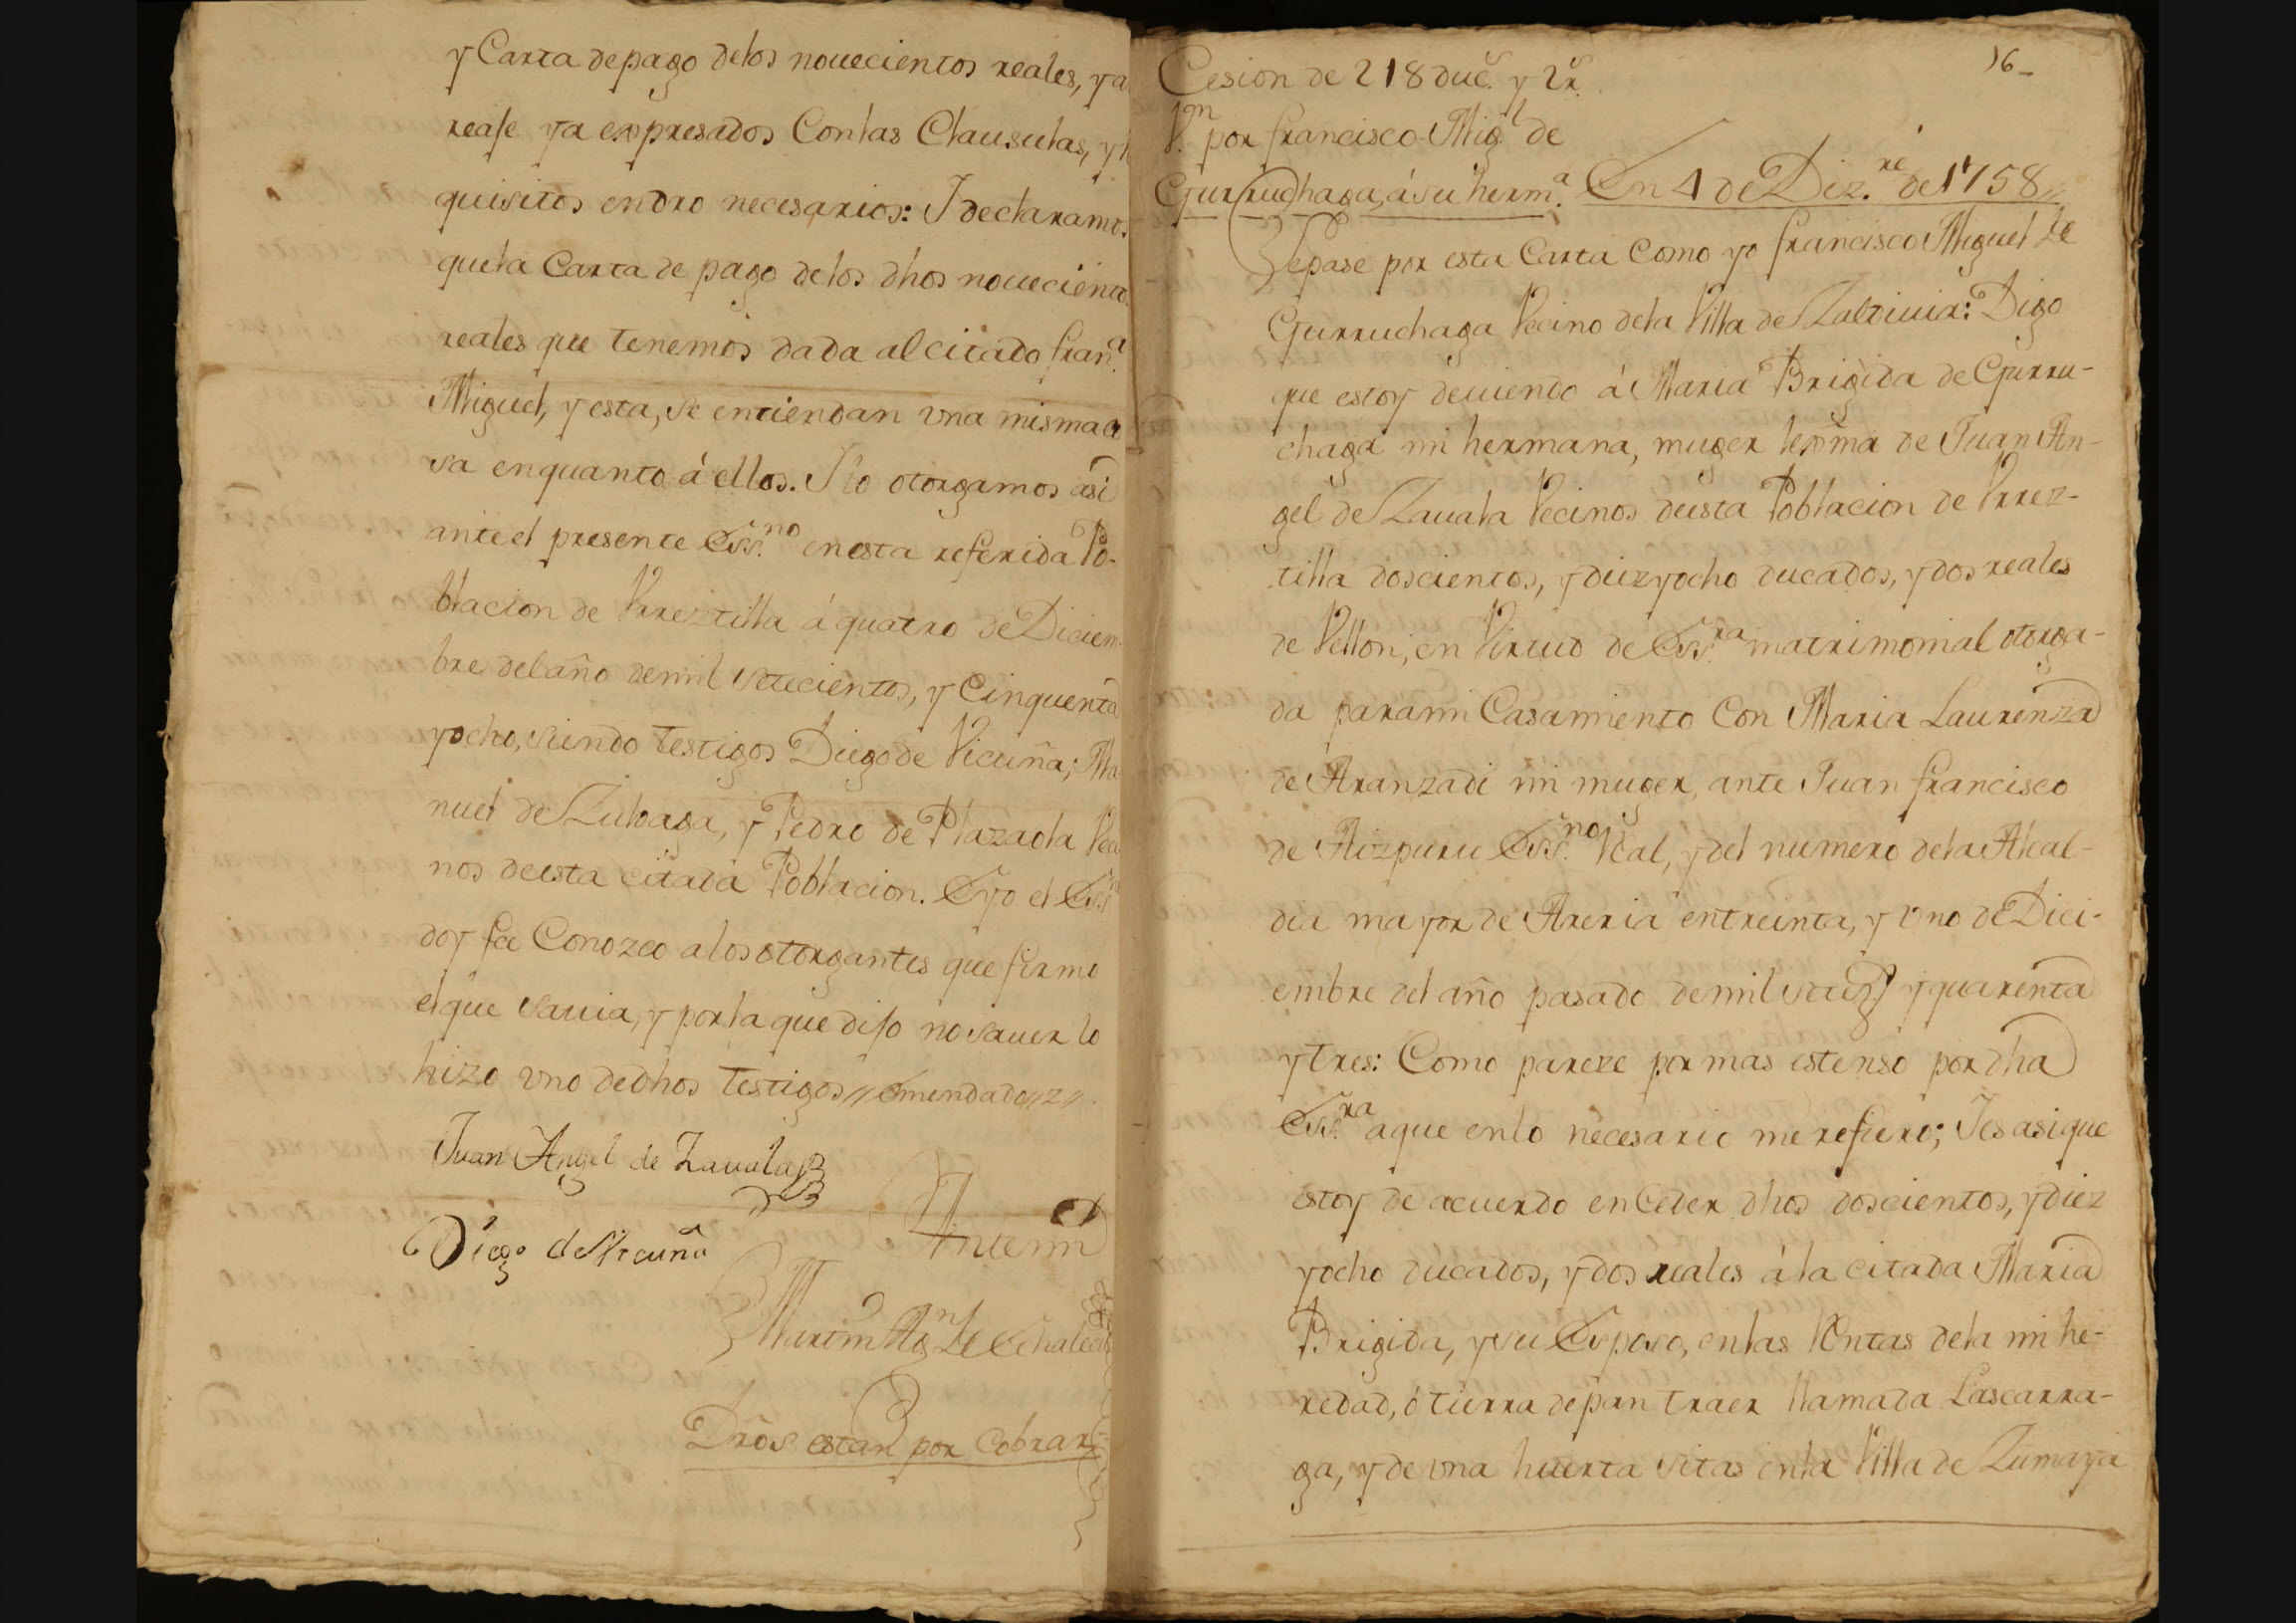 y Carta de pago delos nouecientos reales, y a
reaje ya expresados Conlas Clausulas, y
quisitos endro necesarios: I declaramos
quela Carta de pago delos dhos nouecientos
reales que tenemos dada al citado Fran.co
Miguel, y esta, se entiendan vna misma co
sa enquanto á ellos. I lo otorgamos asi
ante el presente Ess.no enesta referida Po-
blacion de Vrreztilla á quatro de Diciem-
bre del año demil setecientos, y Cinquenta
yocho, siendo testigos Diego de Vicuña, Ma
nuel de Zuloaga, y Pedro de Plazaola Veci
nos deesta citada Poblacion. E yo el Ess.no
doy fee Conozco alos otorgantes que firmo
elque sauia, y porla que dijo no sauer lo
hizo vno dedhos testigos // emendado // z //.
Juan Angel de Zauala
Diego de Vicuña
Antemi
Martin Ag.n de Echaleco
Dros estan por Cobrar
16_
Cesion de 218 duc.s y 2 r.s
V.on por Francisco Mig.l de
Gurruchaga, á su herm.a En 4 de Diz.re de 1758 //
Sepase por esta Carta Como yo Francisco Miguel de
Gurruchaga Vecino dela Villa de Zaldiuia: Digo
que estoy deuiendo á Maria Brigida de Gurru-
chaga mi hermana, muger lexma de Juan An-
gel de Zauala Vecinos deesta Poblacion de Vrrez-
tilla doscientos, y diez yocho ducados, y dos reales
de Vellon, en Virtud de Ess.ra matrimonial otorga-
da parami Casamiento Con Maria Laurenza
de Aranzadi mi muger, ante Juan Francisco
de Aizpuru Ess.no Real, y del numero dela Alcal-
dia mayor de Areria entreinta, y vno de Dici-
embre del año pasado demil setez.s y quarenta
y tres: Como pareze por mas estenso por dha
Ess.ra aque enlo necesario me refiero; Ies asique
estoy de acuerdo en Ceder dhos doscientos, y diez
yocho ducados, y dos reales á la citada Maria
Brigida, y su Esposo, enlas Rentas dela mi he-
redad, ó tierra depan traer llamada Lascarra-
ga, y de vna huerta sitas enla Villa de Zumaya